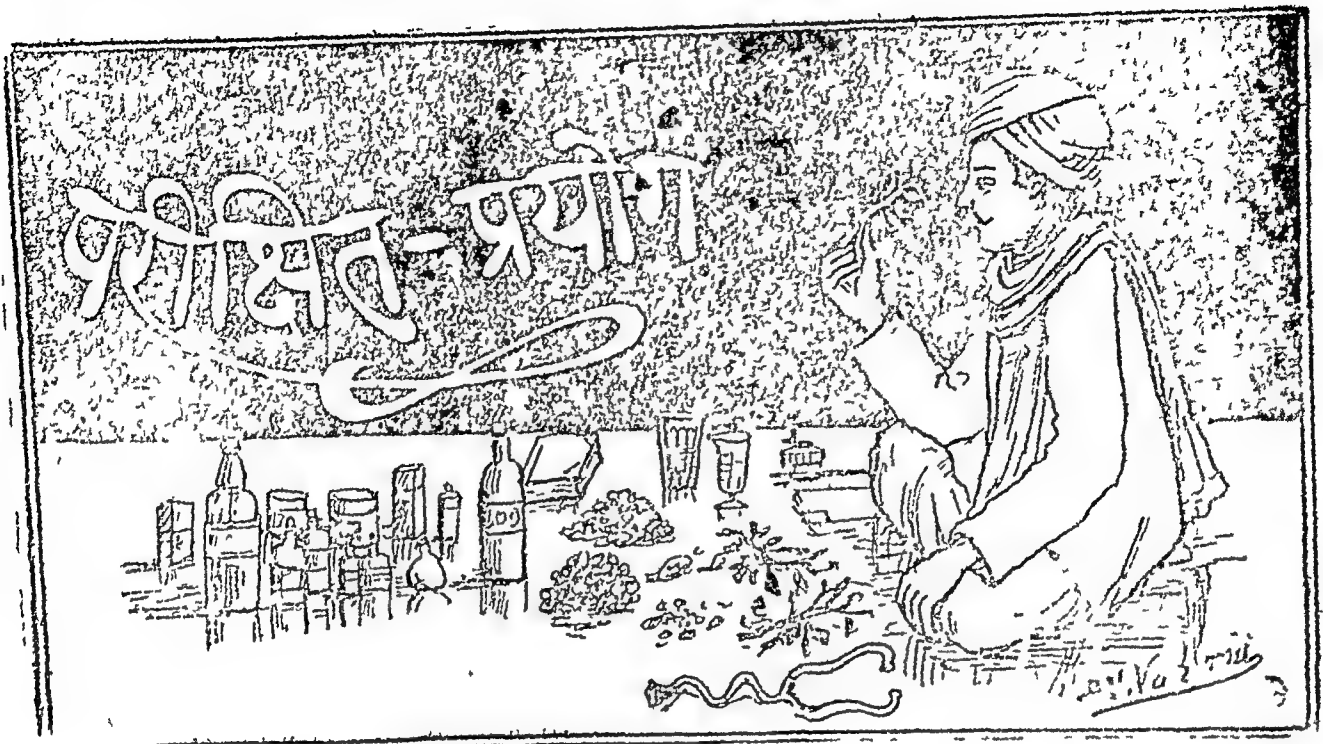 परीक्षित-प्रयोग